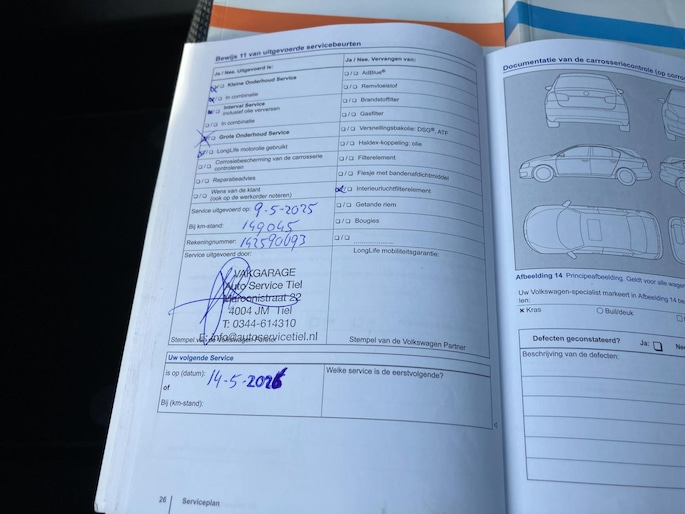 Bewijs 11 van uitgevoerde servicebeurten
Ja / Nee. Uitgevoerd is:
Kleine Onderhoud Service
In combinatie
Interval Service
inclusief olie verversen
In combinatie
Grote Onderhoud Service
LongLife motorolie gebruikt
Corrosiebescherming van de carrosserie
controleren
Reparatieadvies
Wens van de klant
(ook op de werkorder noteren)
Service uitgevoerd op: 9-5-2025
Bij km-stand: 149045
Rekeningnummer: 142590093
Service uitgevoerd door:
VAKGARAGE
Auto Service Tiel
22
4004 JM Tiel
T: 0344-614310
E: info@autoservicetiel.nl
Stempel van de Volkswagen Partner
Ja / Nee. Vervangen van:
AdBlue®
Remvloeistof
Brandstoffilter
Gasfilter
Versnellingsbakolie: DSG®, ATF
Haldex-koppeling: olie
Filterelement
Flesje met bandenafdichtmiddel
Interieurluchtfilterelement
Getande riem
Bougies
LongLife mobiliteitsgarantie:
Stempel van de Volkswagen Partner
Uw volgende Service
is op (datum): 14-5-2026
of
Bij (km-stand):
Welke service is de eerstvolgende?
26 Serviceplan
Documentatie van de carrosseriecontrole (op corro
Afbeelding 14 Principeafbeelding. Geldt voor alle wagen
Uw Volkswagen-specialist markeert in Afbeelding 14 be
len:
× Kras
Buil/deuk
Defecten geconstateerd? Ja: Nee
Beschrijving van de defecten: